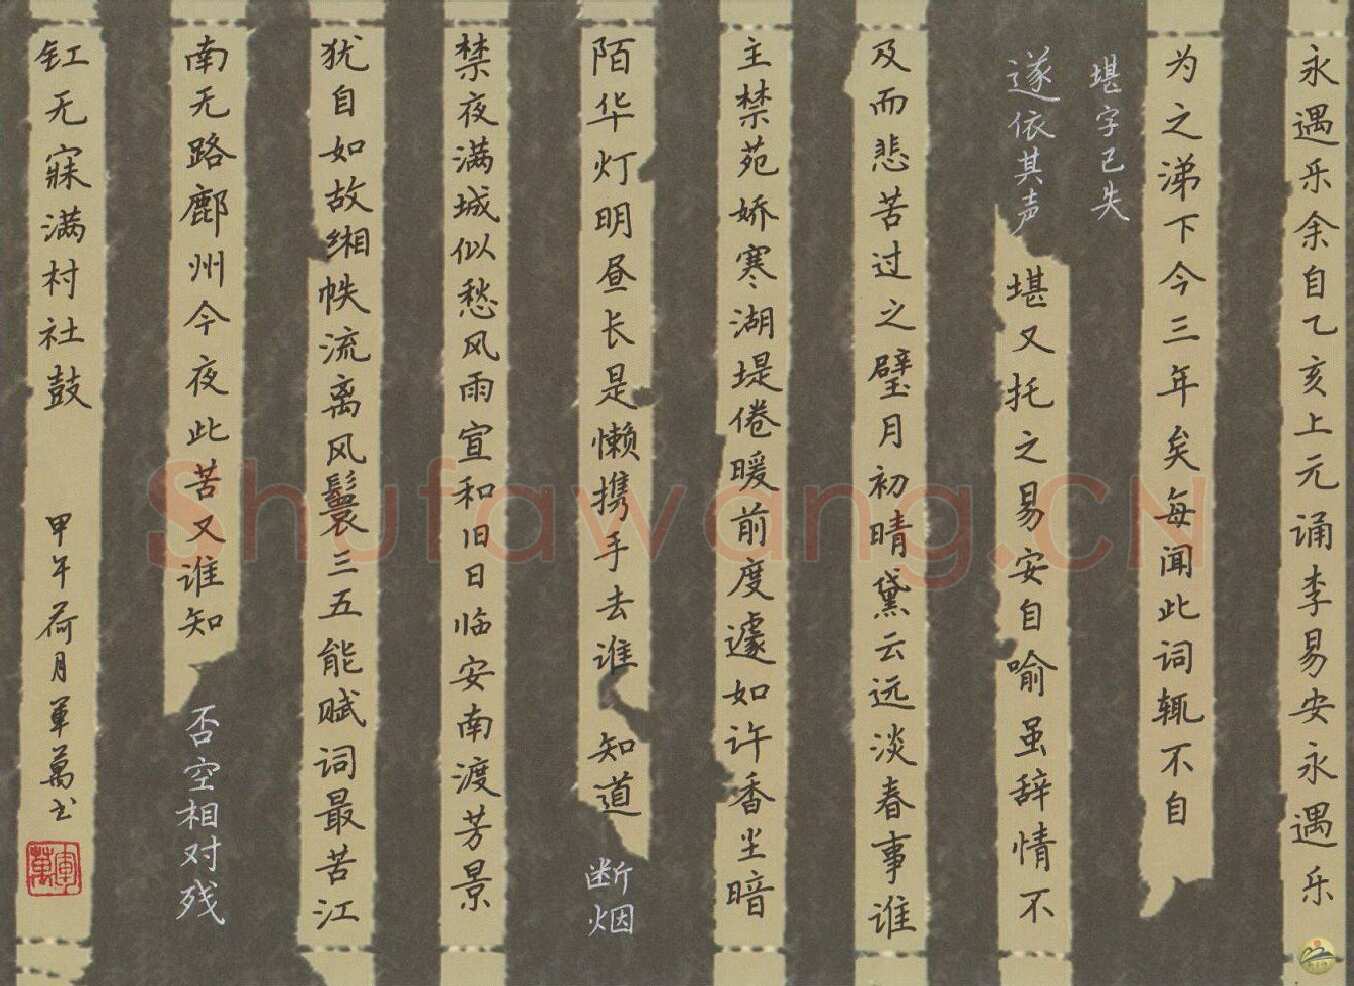 永遇乐余自乙亥上元诵李易安永遇乐
为之涕下今三年矣每闻此词辄不自
堪字已失
遂依其声
堪又托之易安自喻虽辞情不
及而悲苦过之璧月初晴黛云远淡春事谁
主禁苑娇寒湖堤倦暖前度遽如许香尘暗
陌华灯明昼长是懒携手去谁知道断烟
禁夜满城似愁风雨宣和旧日临安南渡芳景
犹自如故缃帙流离风鬟三五能赋词最苦江
南无路鄜州今夜此苦又谁知否空相对残
釭无寐满村社鼓
甲午荷月军萬书
軍萬
Shufawang.CN